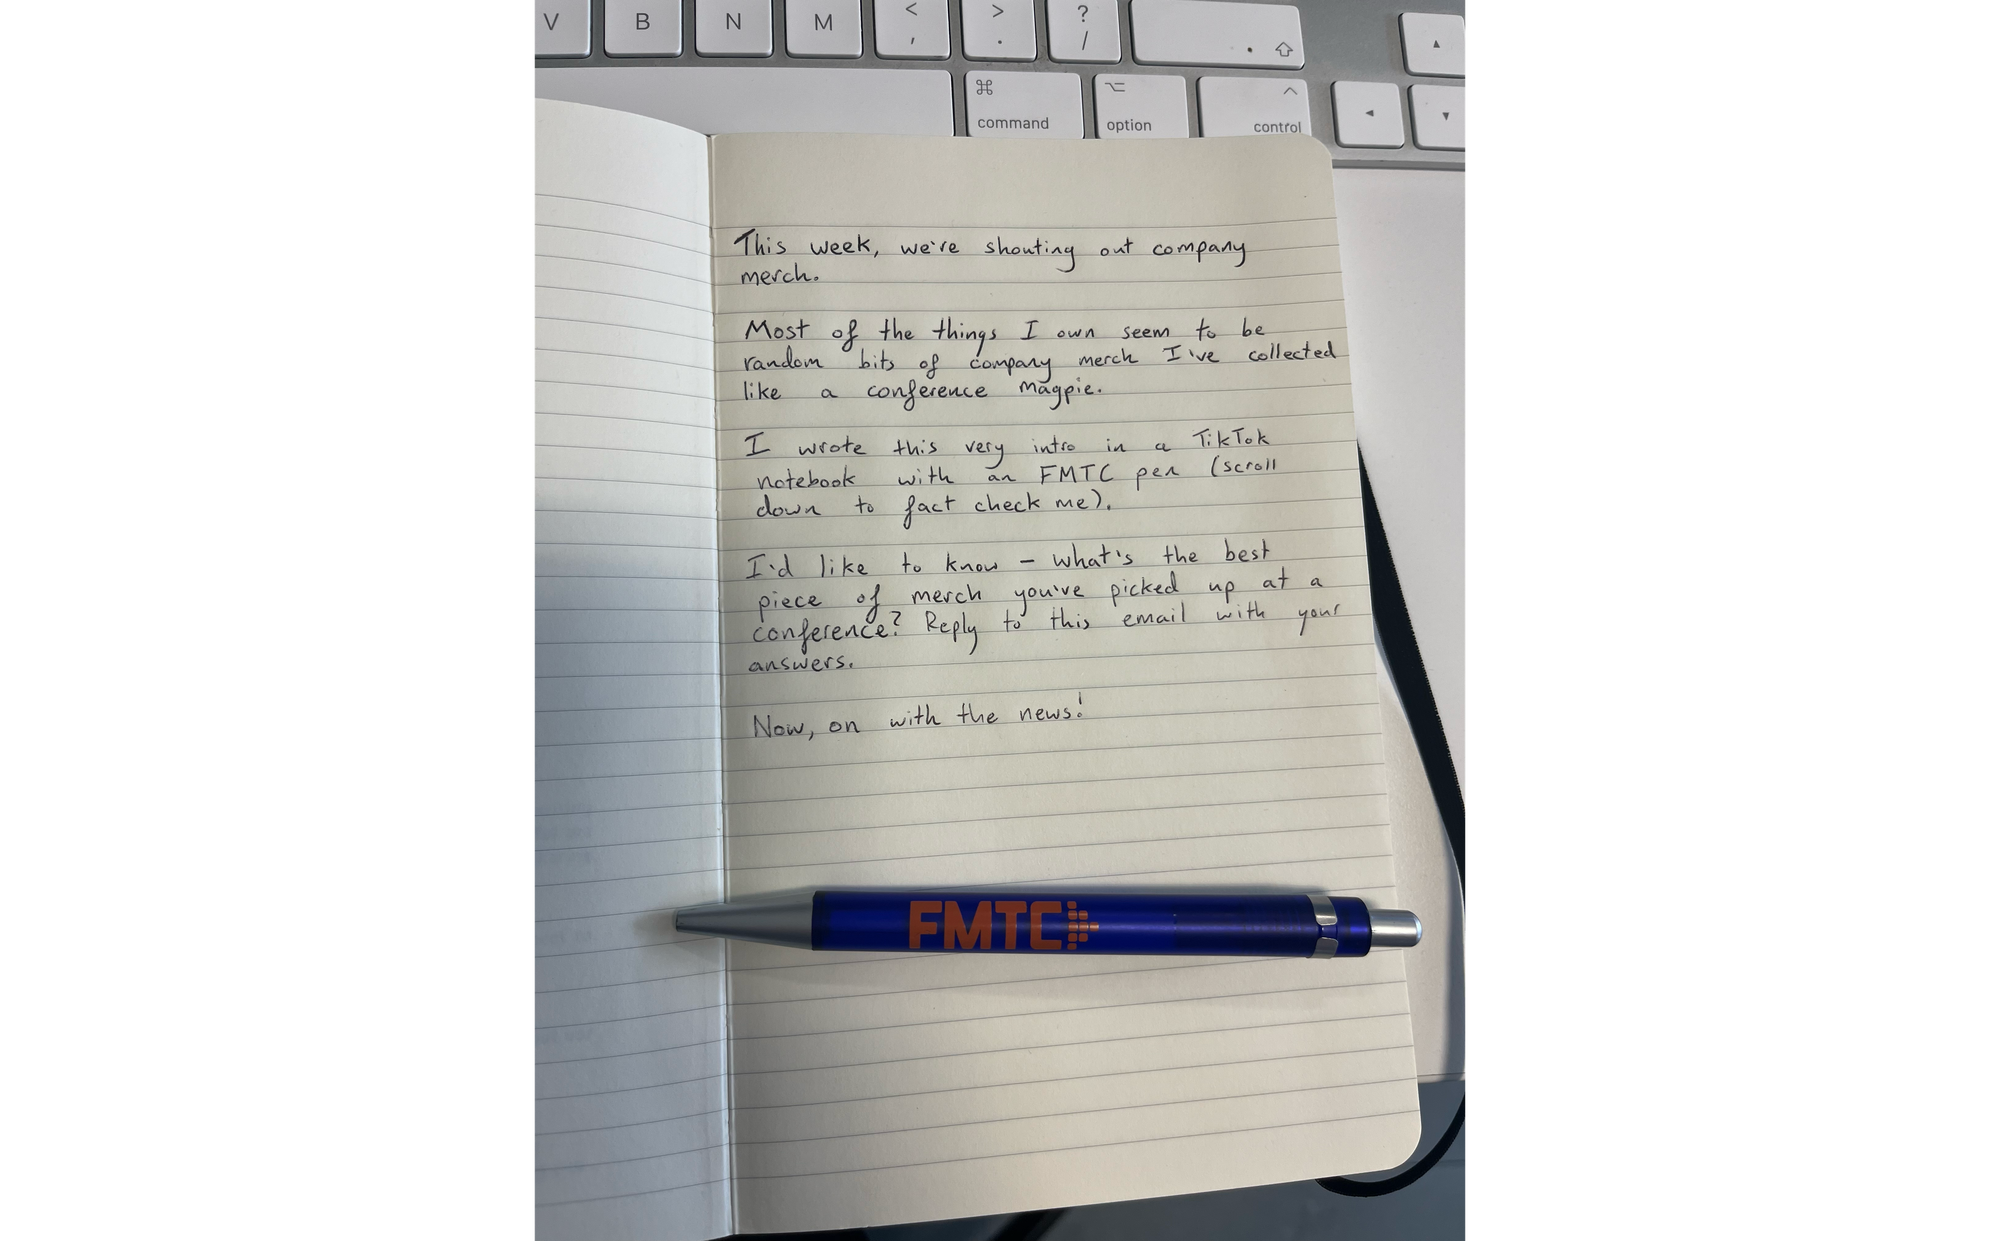 V B N M < , > . ? /
⌘ command ⌥ option ^ control
This week, we're shouting out company
merch.
Most of the things I own seem to be
random bits of company merch I've collected
like a conference magpie.
I wrote this very intro in a TikTok
notebook with an FMTC pen (scroll
down to fact check me).
I'd like to know – what's the best
piece of merch you've picked up at a
conference? Reply to this email with your
answers.
Now, on with the news!
FMTC